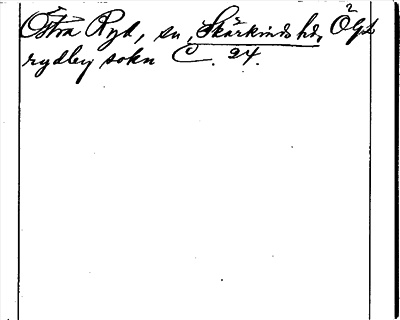 Östra Ryd, sn, Skärkinds hd, Ögl
rydbey sokn C. 24.